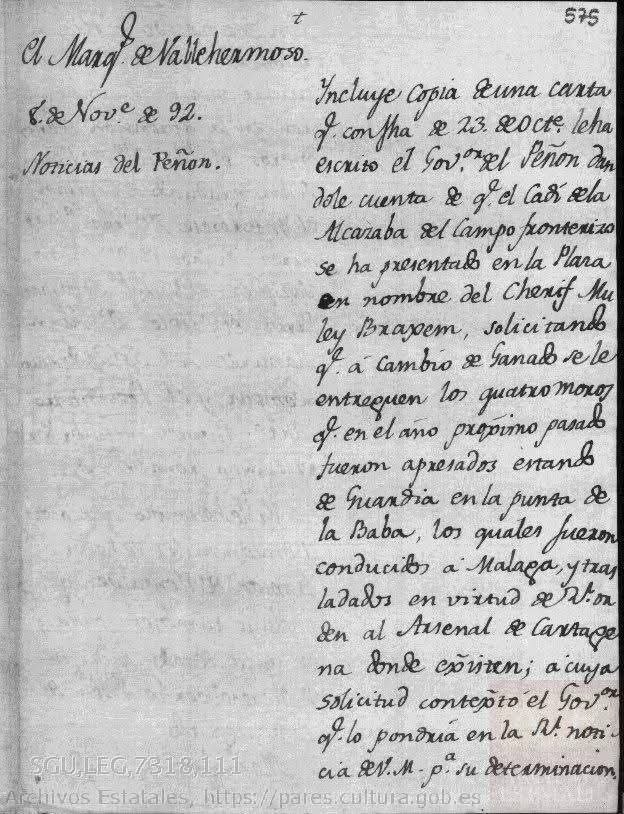 †
575
El Marq.s de Vallehermoso.
8. de Nov.e de 92.
Noticias del Peñon.
Incluye copia de una carta
q.e con fha de 23. de Oct.e le ha
escrito el Gov.or del Peñon dan
dole cuenta de q.e el Cadí de la
Alcazaba del Campo fronterizo
se ha presentado en la Plaza
en nombre del Cherif Mu
ley Braxem, solicitando
q.e a cambio de Ganado se le
entreguen los quatro moros
q.e en el año proximo pasado
fueron apresados estando
de Guardia en la punta de
la Baba, los quales fueron
conducidos a Malaga, y tras
ladados en virtud de R.l or
den al Arsenal de Cartage
na donde existen; a cuya
solicitud contextó el Gov.or
q.e lo pondria en la R.l noti
cia de V. M. p.a su determinacion.
SGU,LEG,7318,111
Archivos Estatales, https://pares.cultura.gob.es